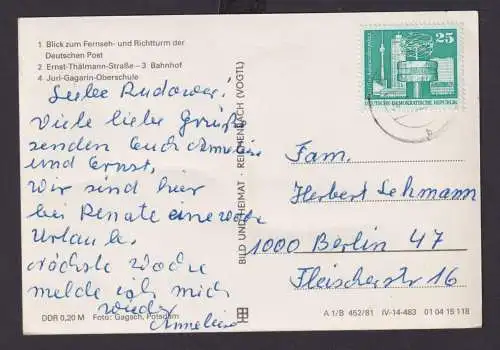 1 Blick zum Fernseh- und Richtturm der
Deutschen Post
2 Ernst-Thälmann-Straße – 3 Bahnhof
4 Juri-Gagarin-Oberschule
Viele liebe Grüße
senden Euch Annelise
und Ernst,
wir sind hier
bei Renate eine
Urlaub.
nächste Woche
melde ich mich
wieder
DDR 0,20 M Foto: Gagsch, Potsdam
BILD UND HEIMAT · REICHENBACH (VOGTL)
25
DEUTSCHE DEMOKRATISCHE REPUBLIK
Fam.
Herbert Lehmann
1000 Berlin 47
Fleischerstr 16
A 1/B 452/81 IV-14-483 01 04 15 118